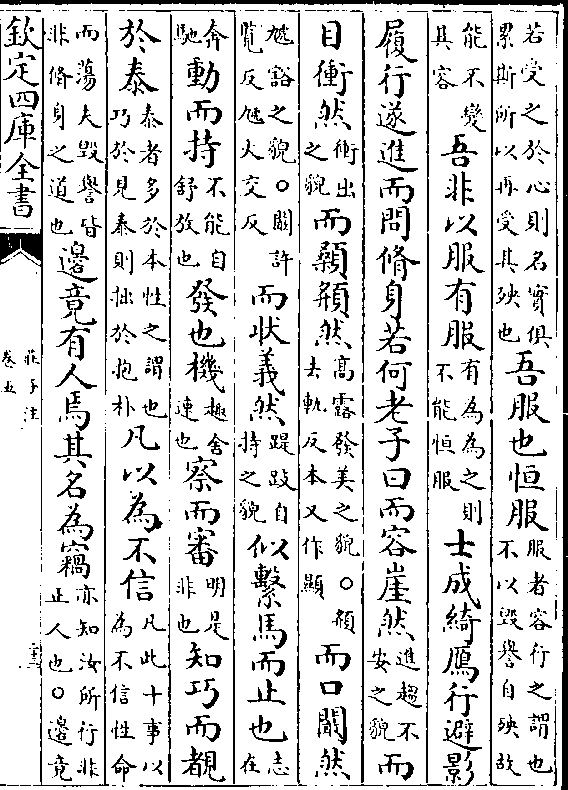 若受之於心則名實俱
累斯所以再受其殃也
吾服也恒服
服者容行之謂也
不以毀譽自殃故
能不變
其容
吾非以服有服
有為為之則
不能恒服
士成綺鴈行避影
履行遂進而問脩身若何老子曰而容崖然
進趨不
安之貌
而
目衝然
衝出
之貌
而顙頯然
高露發美之貌○頯
去軌反本又作顯
而口闞然
虓豁之貌○闞許
覽反虓火交反
而狀義然
踶跂自
持之貌
似繫馬而止也
志
在
奔
馳
動而持
不能自
舒放也
發也機
趣舍
速也
察而審
明是
非也
知巧而覩
於泰
泰者多於本性之謂也
巧於見泰則拙於抱朴
凡以為不信
凡此十事以
為不信性命
而蕩夫毀譽皆
非脩身之道也
邊竟有人焉其名為竊
亦知汝所行非
止人也○邊竟
欽定四庫全書
莊子注
卷五
二十三